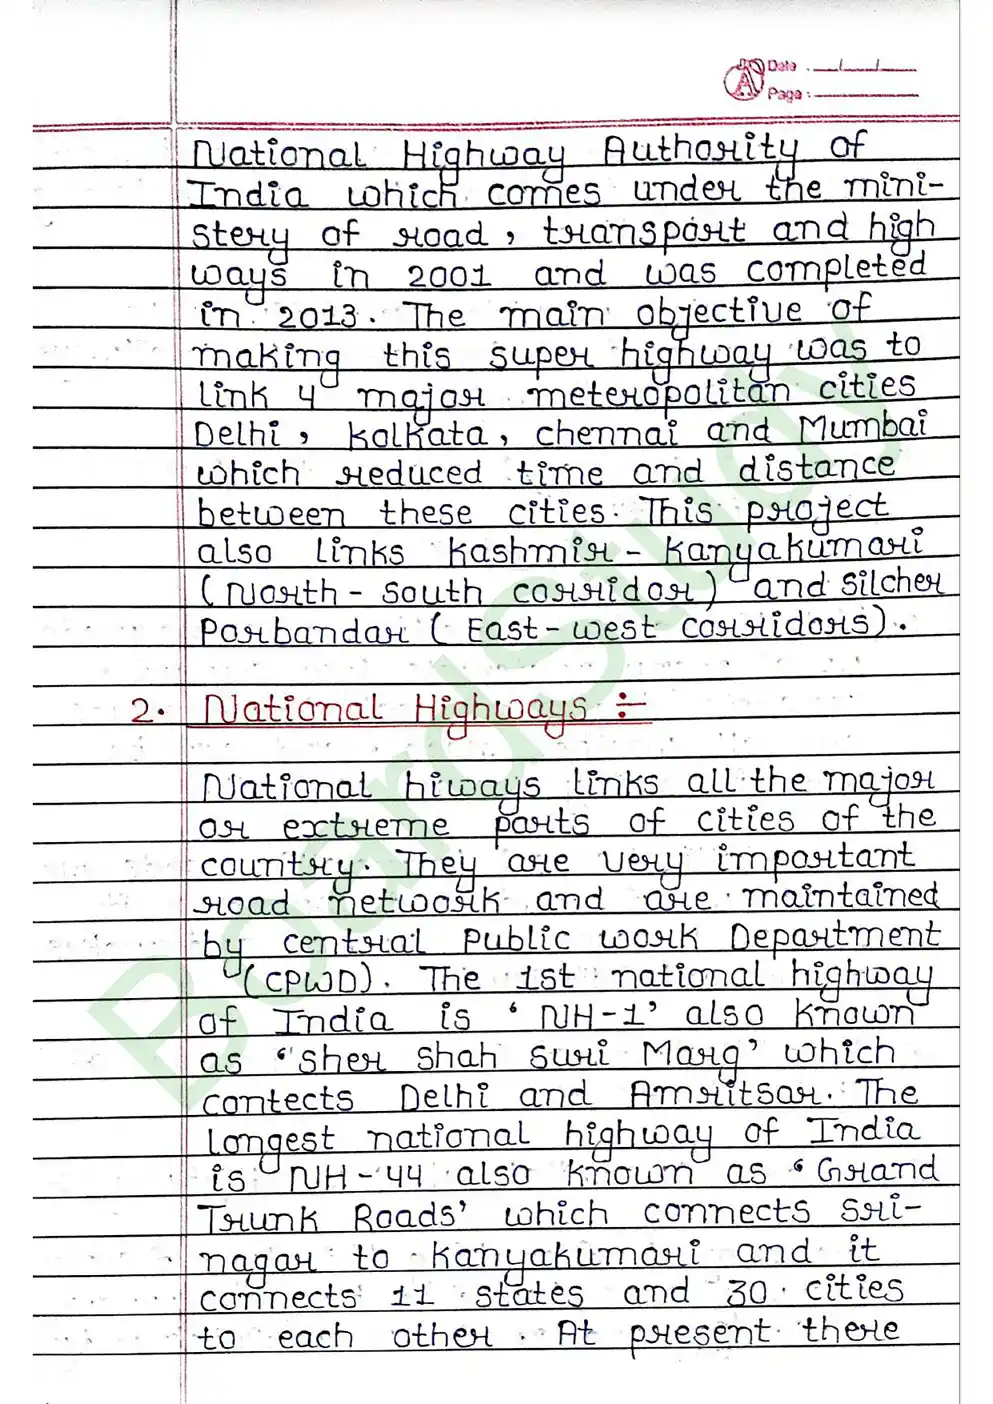 Date : __/__/__
Page :
National Highway Authority of
India which comes under the mini-
stery of road, transport and high
ways in 2001 and was completed
in 2013. The main objective of
making this super highway was to
link 4 major meteropolitan cities
Delhi, Kolkata, chennai and Mumbai
which reduced time and distance
between these cities. This project
also links Kashmir - Kanyakumari
(North - South corridor) and Silcher
Porbandar ( East-west corridors).
2. National Highways ÷
National hiways links all the major
or extreme parts of cities of the
country. They are very important
road network and are maintained
by central Public work Department
(CPWD). The 1st national highway
of India is 'NH-1' also known
as 'Sher Shah Suri Marg' which
contects Delhi and Amritsar. The
longest national highway of India
is NH-44 also known as 'Grand
Trunk Roads' which connects Sri-
nagar to Kanyakumari and it
connects 11 states and 30 cities
to each other. At present there
BoardStudy